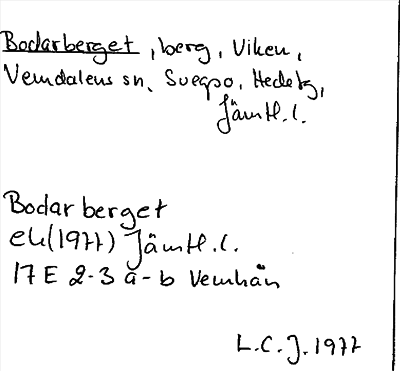 Bodarberget, berg, Viken,
Vemdalens sn, Svegpo, Hedetg,
Jämtl. l.
Bodarberget
ek(1977) Jämtl. l.
17E 2-3 a-b Vemhån
L.C.J. 1977